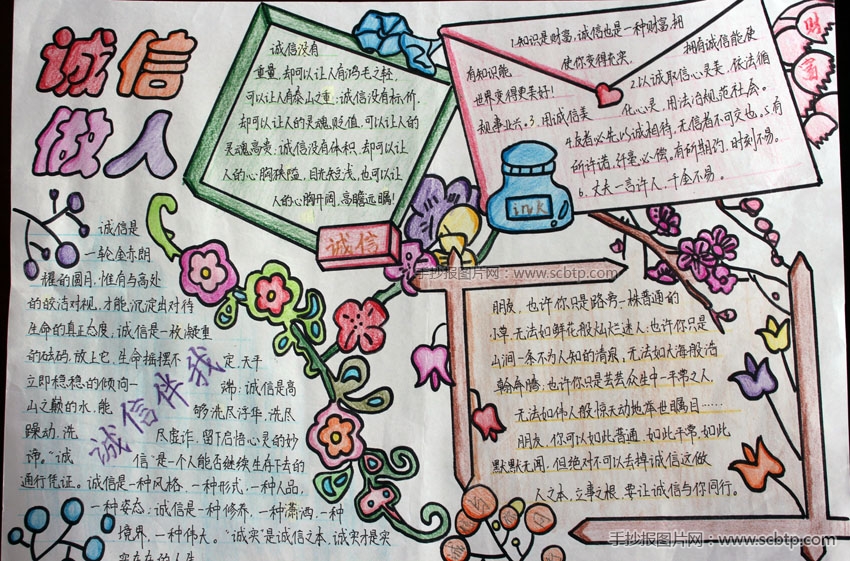 诚信
做人
诚信没有
重量,却可以让人有鸿毛之轻,
可以让人有泰山之重;诚信没有标价,
却可以让人的灵魂贬值,可以让人的
灵魂高贵;诚信没有体积,却可以让
人的心胸狭隘,目光短浅,也可以让
人的心胸开阔,高瞻远瞩!
诚信
1.知识是财富,诚信也是一种财富,拥
有知识能使你变得充实,拥有诚信能使
世界变得更美好!2.以诚取信心灵美,依法循
规事业兴。3.用诚信美化心灵,用法治规范社会。
4.友者必先以诚相待,无信者不可交也。5.有
所许诺,纤毫必偿。有所期约,时刻不易。
6.丈夫一言许人,千金不易。
财
富
ink
诚信是
一轮金赤朗
耀的圆月,惟有与高处
的皎洁对视,才能沉淀出对待
生命的真正态度;诚信是一枚凝重
的砝码,放上它,生命摇摆不定,天平
立即稳稳的倾向一端;诚信是高
山之巅的水,能够洗尽浮华,洗尽
躁动,洗尽虚诈,留下启悟心灵的妙
谛。“诚信”是一个人能否继续生存下去的
通行凭证。诚信是一种风格,一种形式,一种人品,
一种姿态;诚信是一种修养,一种潇洒,一种
境界,一种伟大。“诚实”是诚信之本,诚实才是实
实在在的人生
诚信伴我
手抄报图片网:www.scbtp.com
朋友,也许你只是路旁一株普通的
小草,无法如鲜花般灿烂迷人;也许你只是
山涧一条不为人知的清泉,无法如大海般浩
瀚奔腾;也许你只是芸芸众生中一平常之人,
无法如伟人般惊天动地举世瞩目……
朋友,你可以如此普通,如此平常,如此
默默无闻,但绝对不可以丢掉诚信这做
人之本,立事之根,要让诚信与你同行。
手抄报图片网:www.scbtp.com